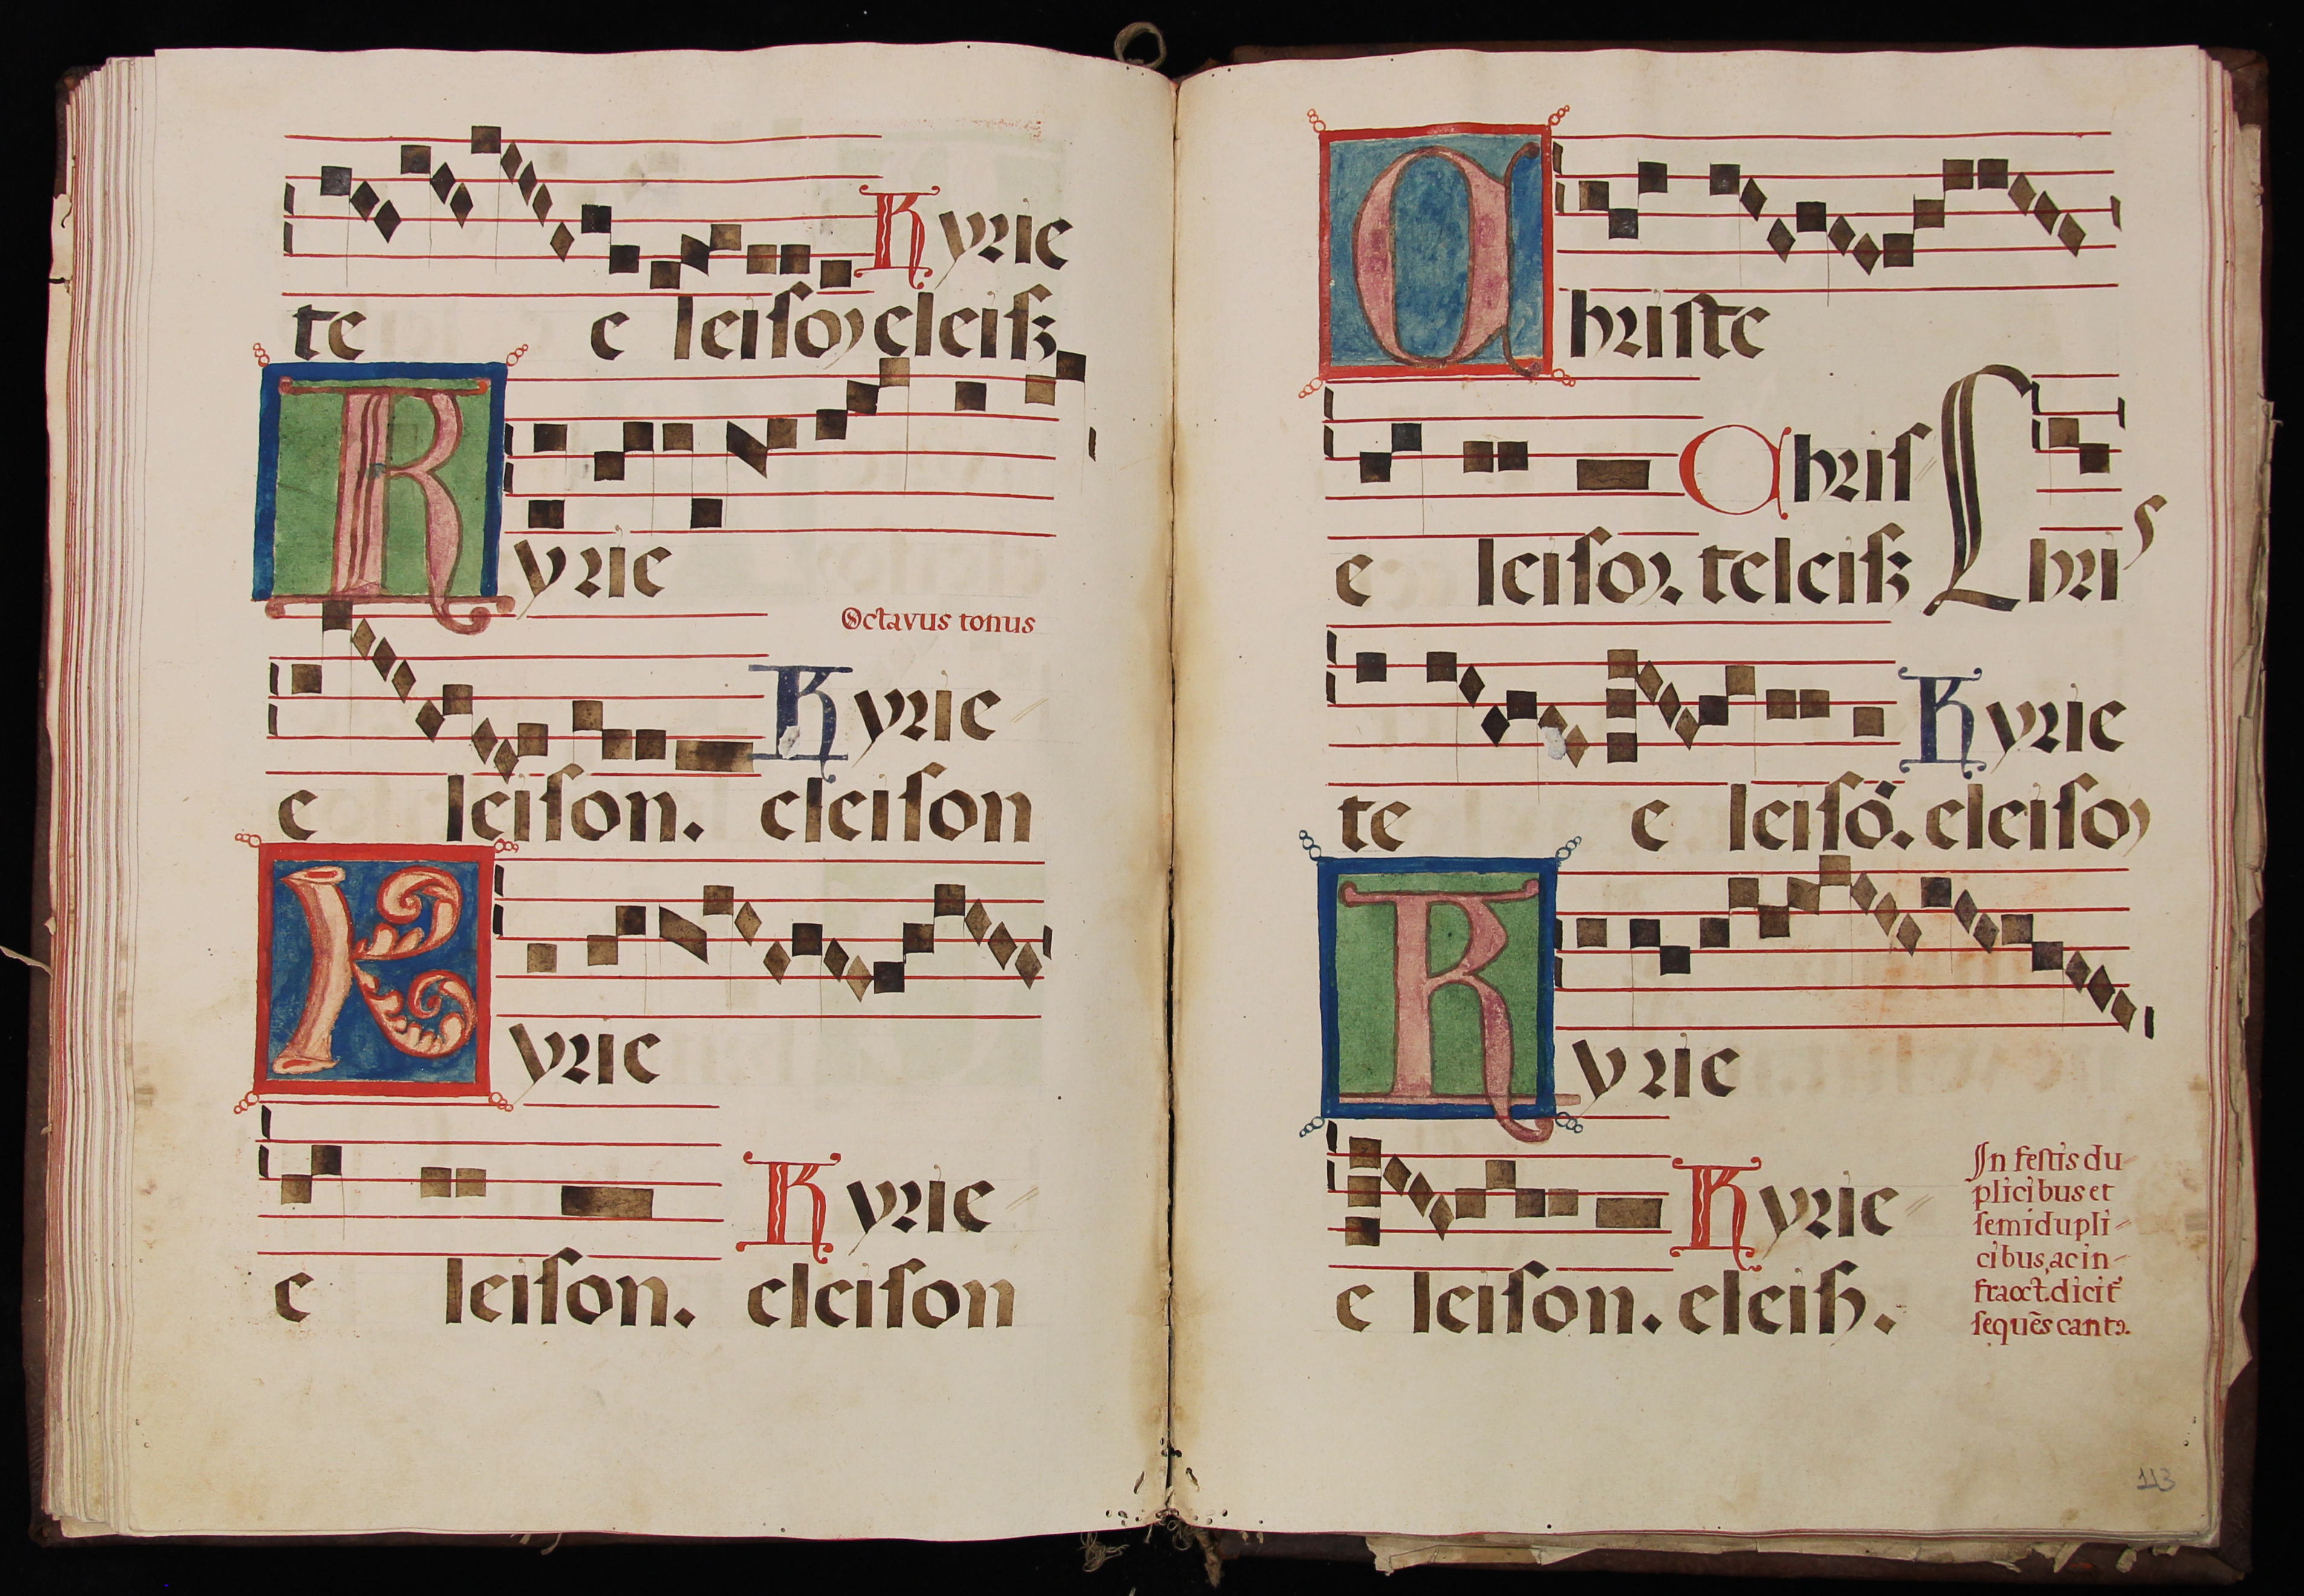 Kyrie
te e leiſoɳ eleiſꝫ
Kyrie
Octavus tonus
Kyrie
e leiſon. eleiſon
Kyrie
Kyrie
e leiſon. eleiſon
Christe
Chriſ
e leiſoɳ. teleiſꝫ Chriſ
Kyrie
te e leiſō. eleiſoɳ
Kyrie
Kyrie
e leiſon. eleiſꝫ.
In feſtis du-
plicibus et
ſemidupli-
cibus, ac in-
fraoct. dicit᷑
ſequēs cantꝯ.
113